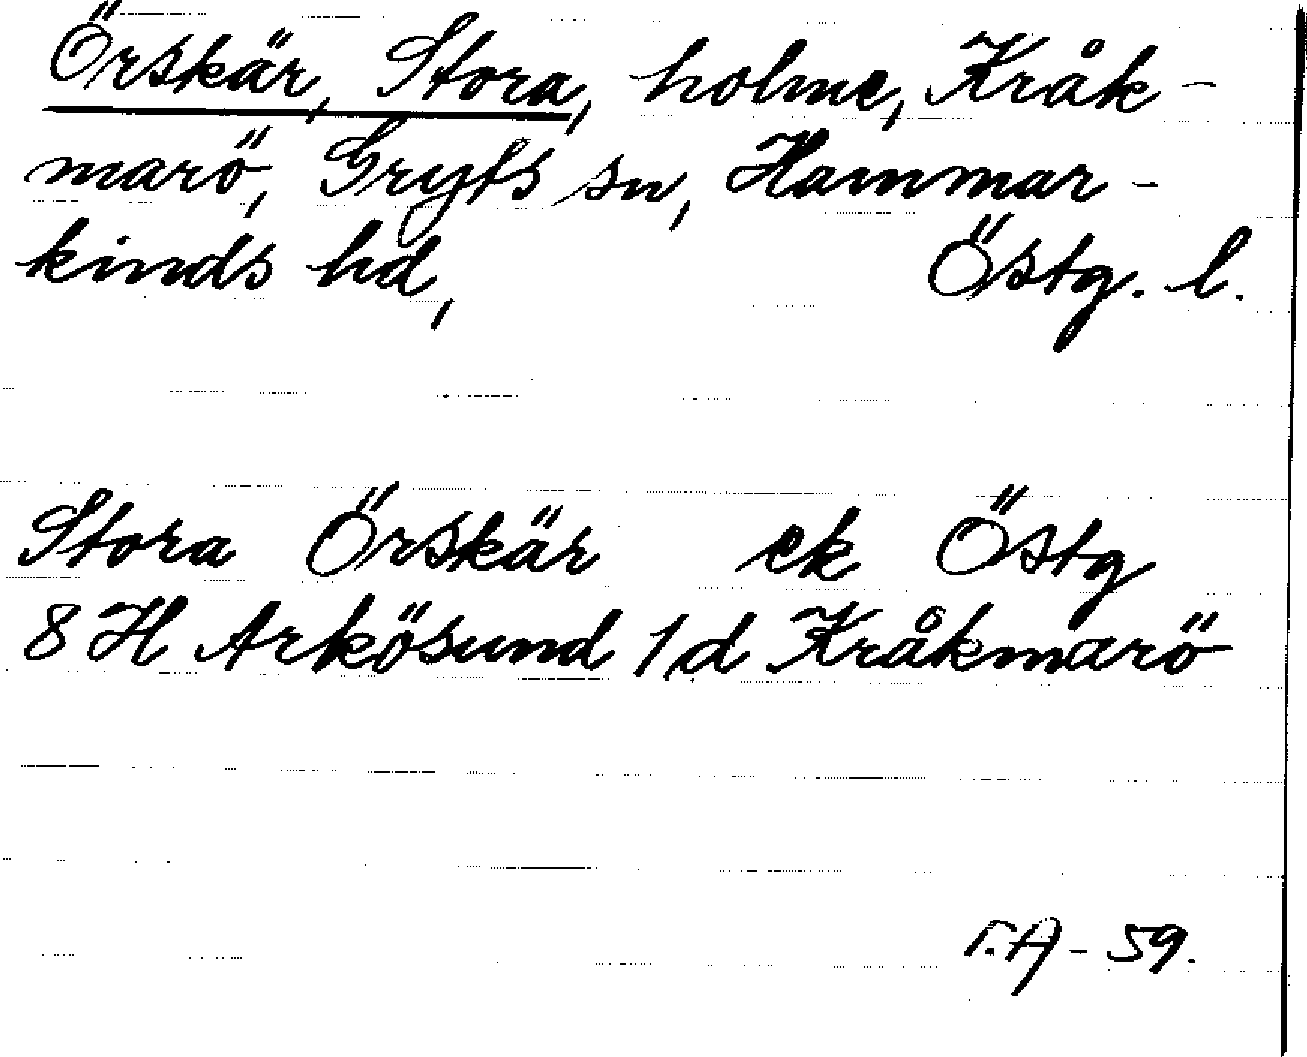 Örskär, Stora, holme, Kråk-
marö, Gryts sn, Hammar-
kinds hd, Östg. l.
Stora Örskär ek Östg
8 H Arkösund 1/d Kråkmarö
T.A - 59.